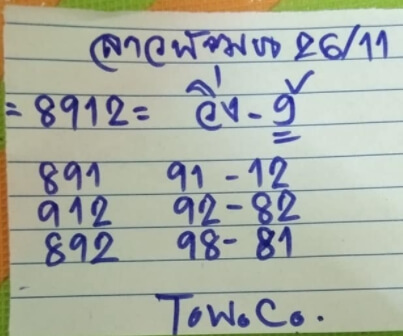 ลาวพัฒนา 26/11
= 8912 = วิ่ง - 9
891 91 - 12
912 92 - 82
892 98 - 81
T.W.Co.